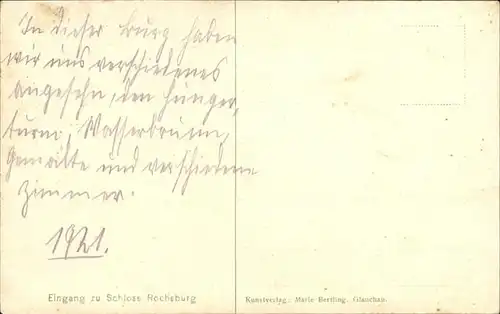 In dieser Burg haben
wir uns verschiedenes
angesehn, den Hunger-
turm, Wasserbrunn,
Gemälte und verschiedene
Zimmer.
1921.
Eingang zu Schloss Rochsburg
Kunstverlag: Marie Bertling, Glauchau.